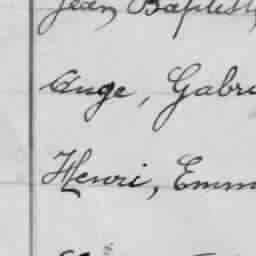 Jean Baptist
Ange, Gabri
Henri, Emm